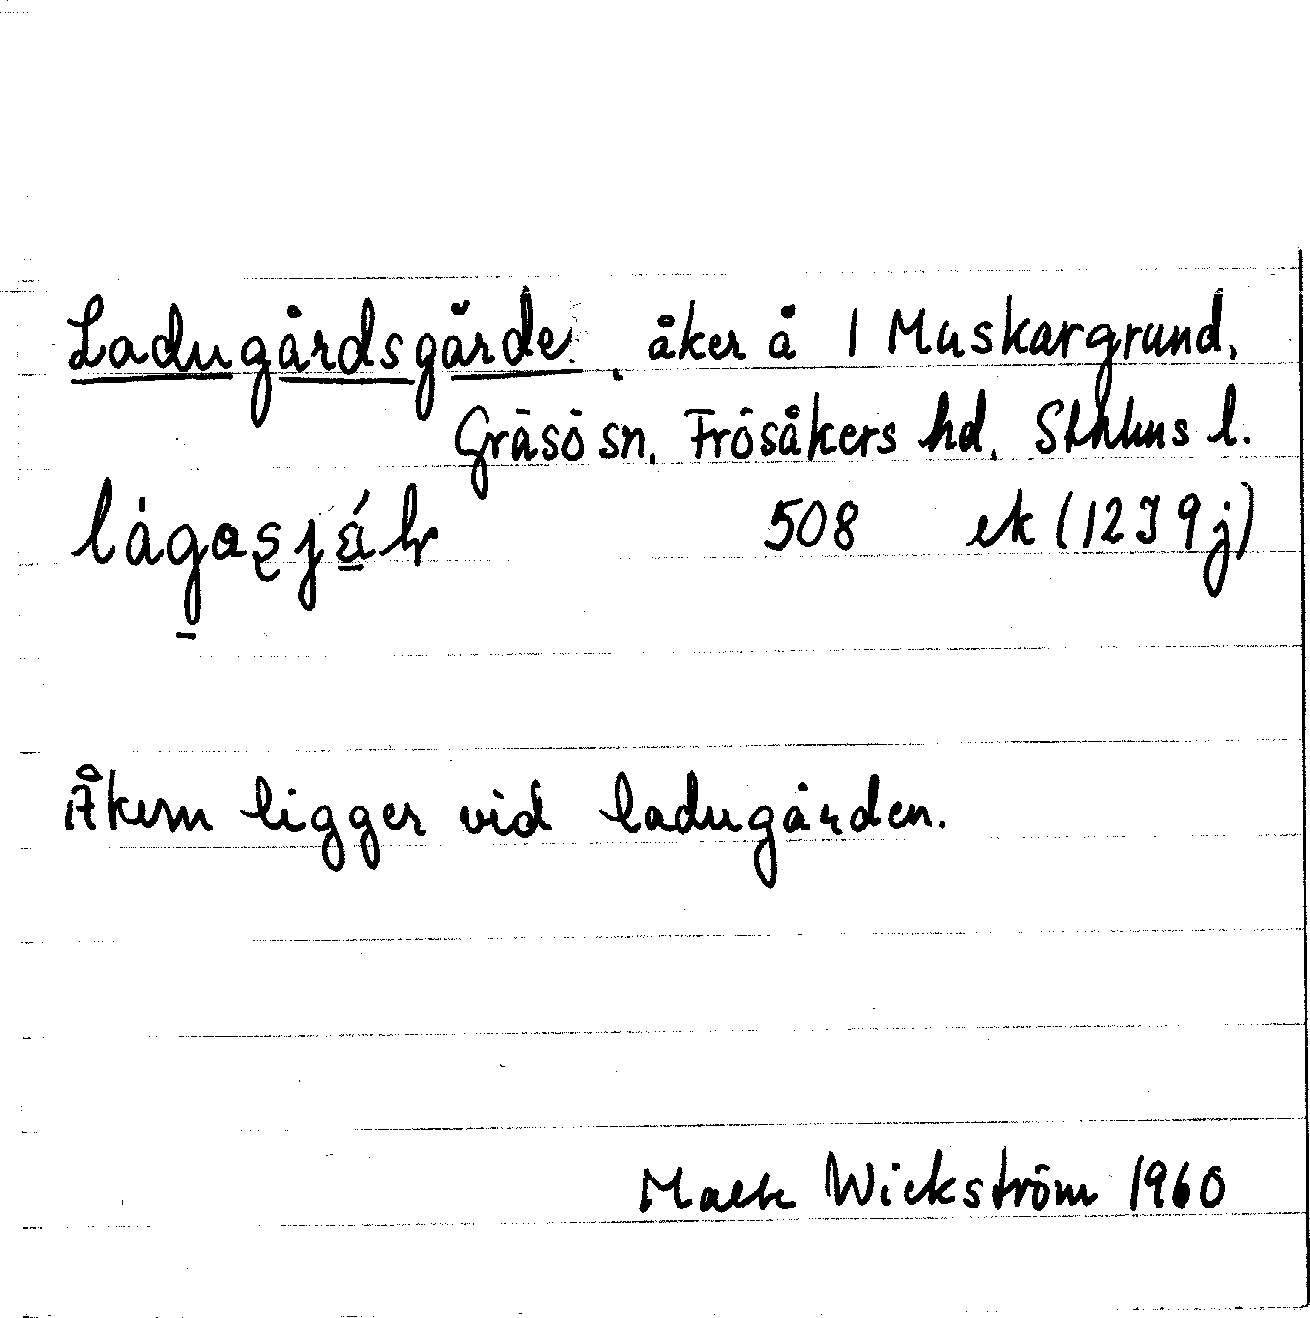 Ladugårdsgärde. åker å 1 Muskargrund,
Gräsö sn. Frösåkers hd. Sthlms l.
508 ek (12J9j)
Åkern ligger vid ladugården.
Wickström 1960